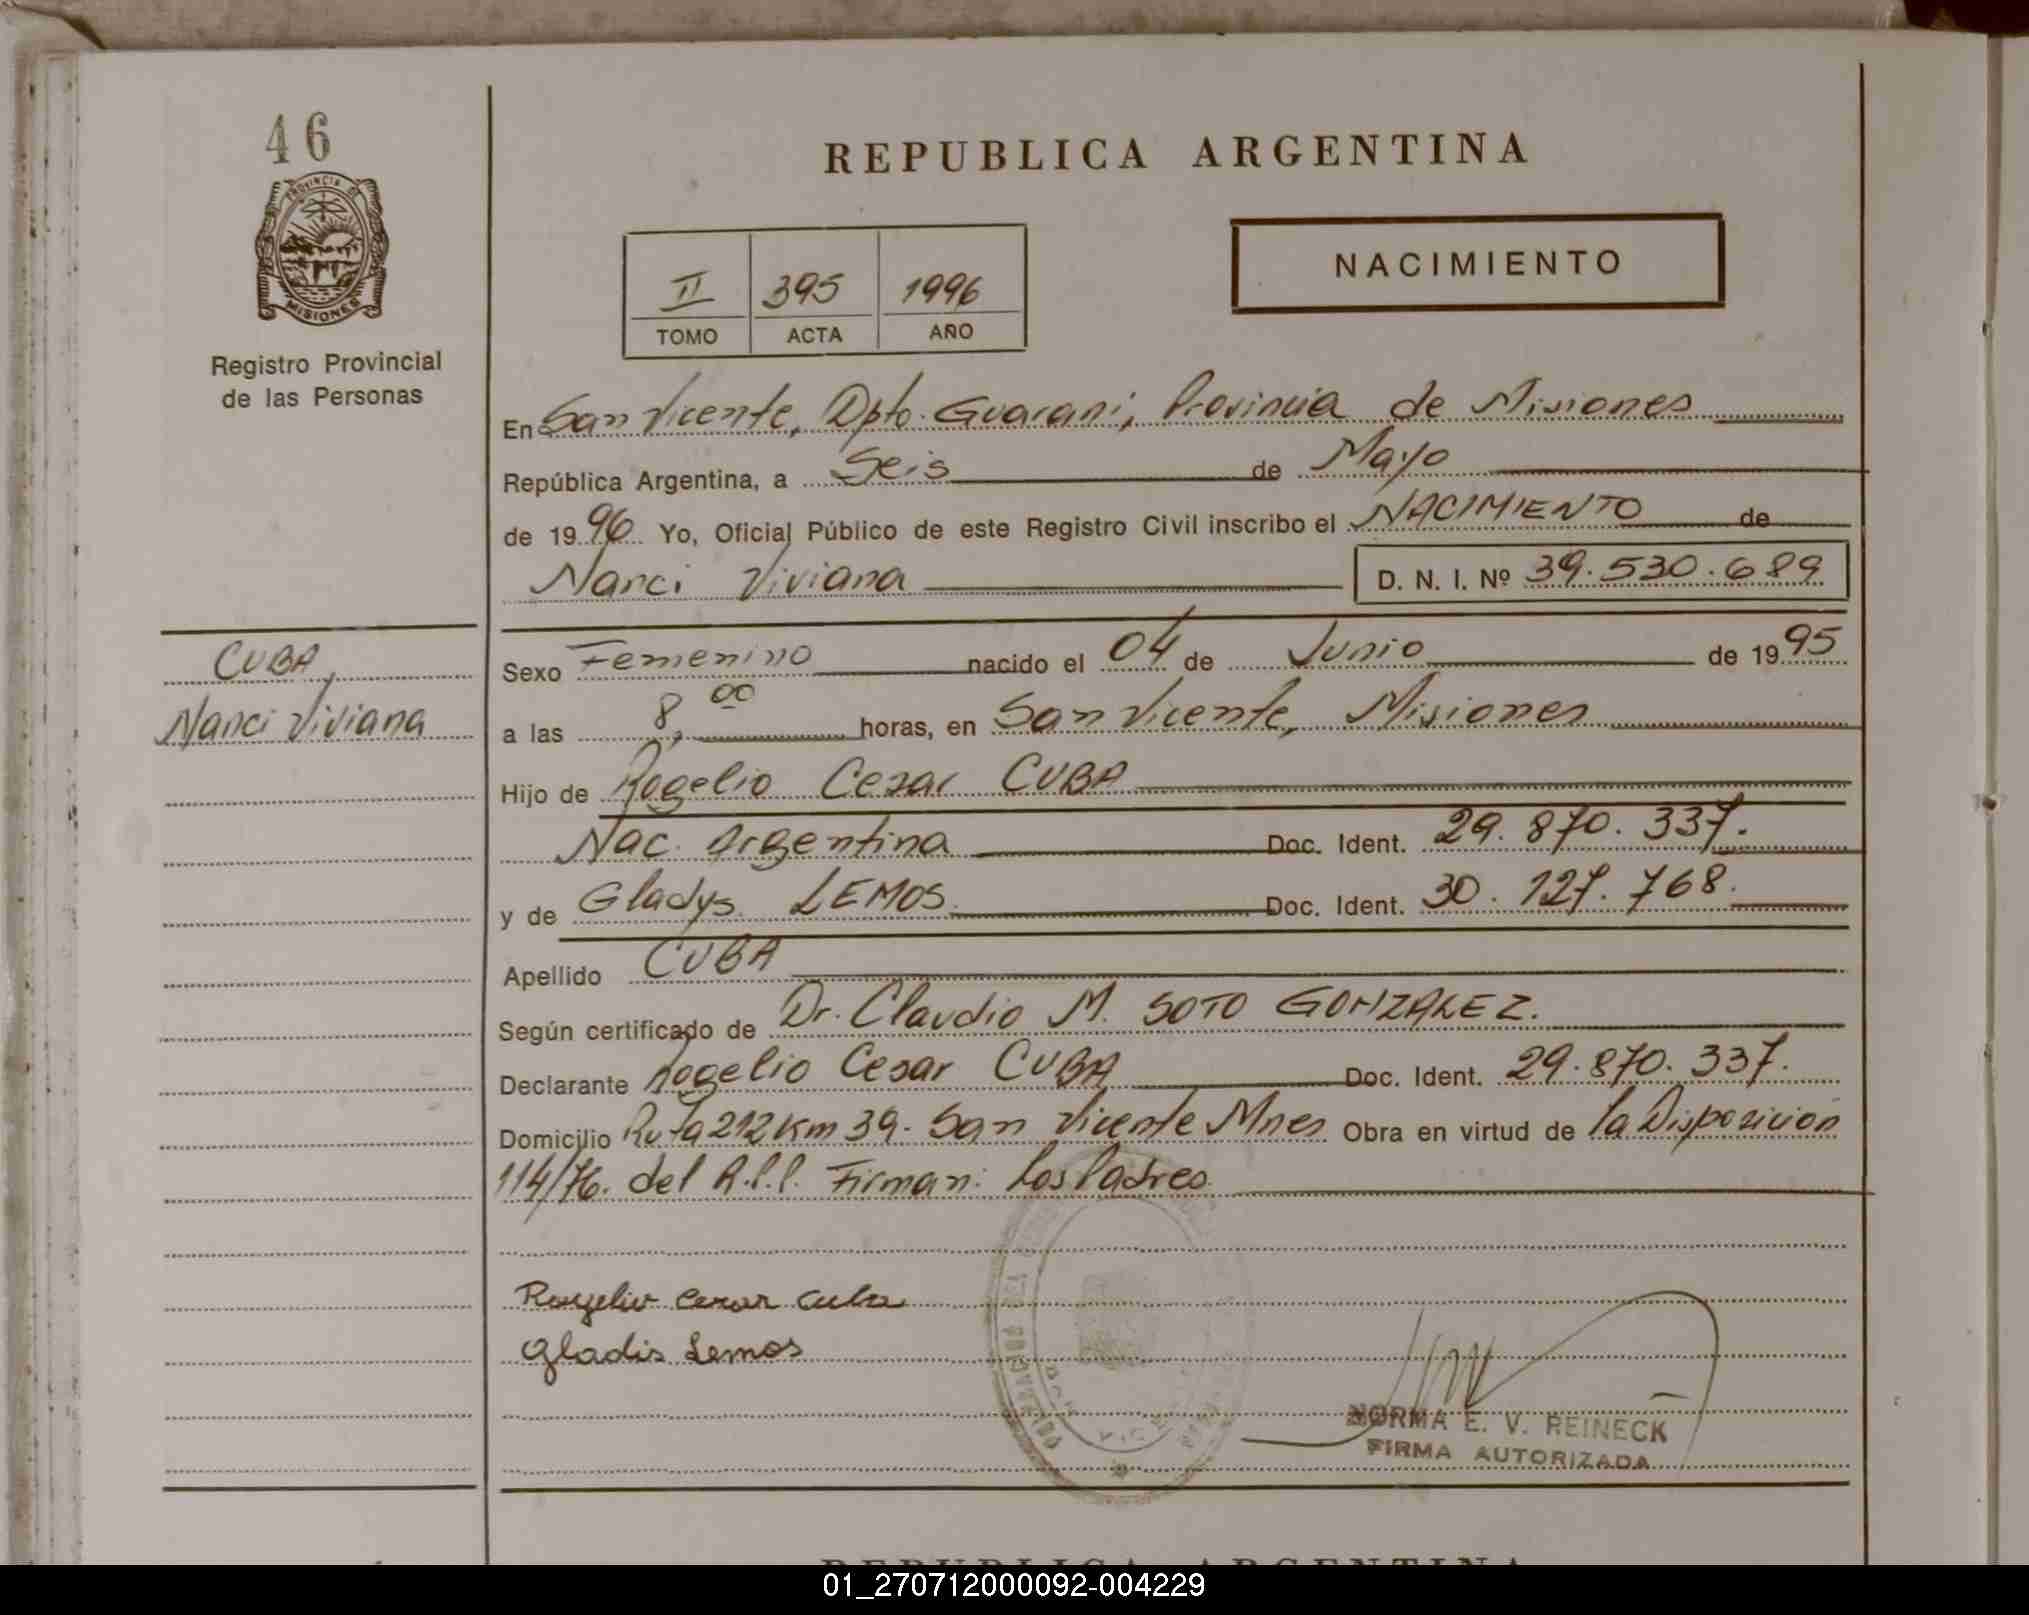 46
PROVINCIA DE
MISIONES
Registro Provincial
de las Personas
REPUBLICA ARGENTINA
II 395 1996
TOMO ACTA AÑO
NACIMIENTO
En San Vicente, Dpto. Guarani, Provincia de Misiones
República Argentina, a Seis de Mayo
de 1996 Yo, Oficial Público de este Registro Civil inscribo el NACIMIENTO de
Nanci Viviana D. N. I. Nº 39.530.689
CUBA,
Nanci Viviana
Sexo Femenino nacido el 04 de Junio de 1995
a las 8,00 horas, en San Vicente, Misiones
Hijo de Rogelio Cesar CUBA
Nac. Argentina Doc. Ident. 29.870.337.
y de Gladys LEMOS Doc. Ident. 30.127.768.
Apellido CUBA
Según certificado de Dr. Claudio M. SOTO GONZALEZ.
Declarante Rogelio Cesar CUBA Doc. Ident. 29.870.337.
Domicilio Ruta 212 Km 39. San Vicente Mnes Obra en virtud de la Disposicion
114/76. del R.P.P. Firman: Los Padres
Rogelio Cesar Cuba
Gladis Lemos
NORMA E. V. REINECK
FIRMA AUTORIZADA
REPUBLICA ARGENTINA
01_270712000092-004229